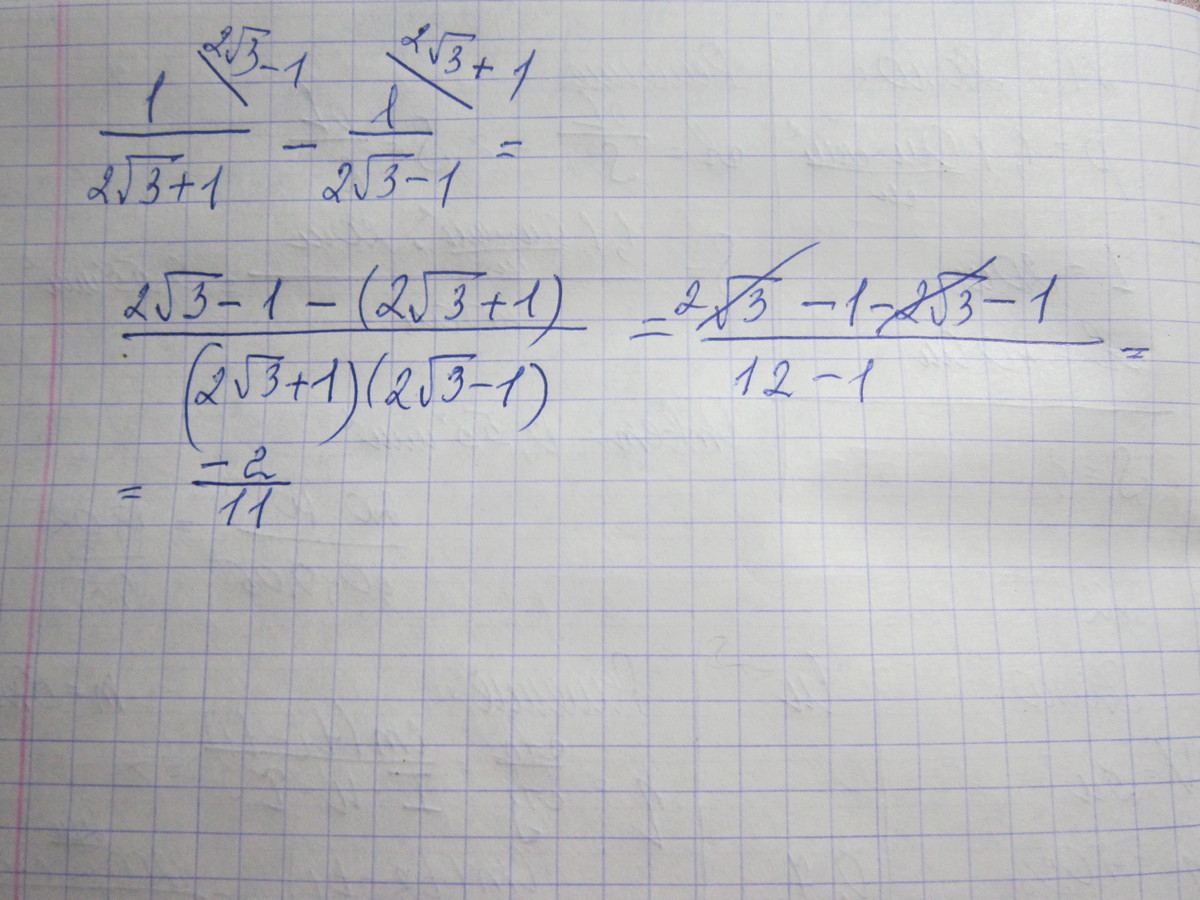 1 2√3-1 1 2√3+1
――― - ――― =
2√3+1 2√3-1
2√3-1-(2√3+1) = 2√3-1-2√3-1 =
(2√3+1)(2√3-1) 12-1
= -2
11